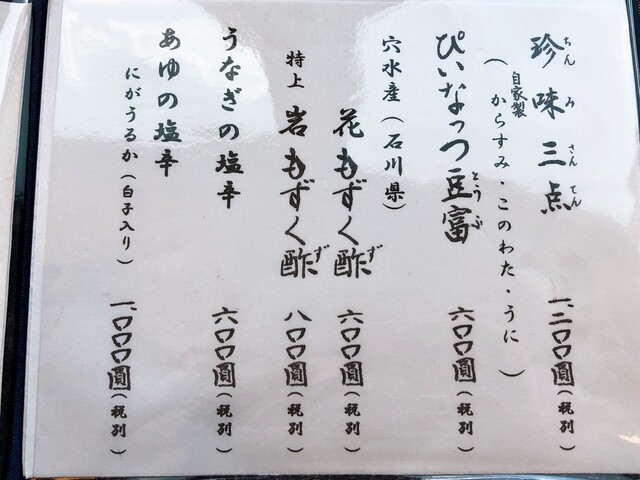 珍味三点 一、二〇〇圓(税別)
ちんみさんてん
(自家製からすみ・このわた・うに)
ぴいなっつ豆富 六〇〇圓(税別)
とうふ
穴水産(石川県)
花もずく酢 六〇〇圓(税別)
ず
特上 岩もずく酢 八〇〇圓(税別)
ず
うなぎの塩辛 六〇〇圓(税別)
あゆの塩辛
にがうるか(白子入り) 一、〇〇〇圓(税別)